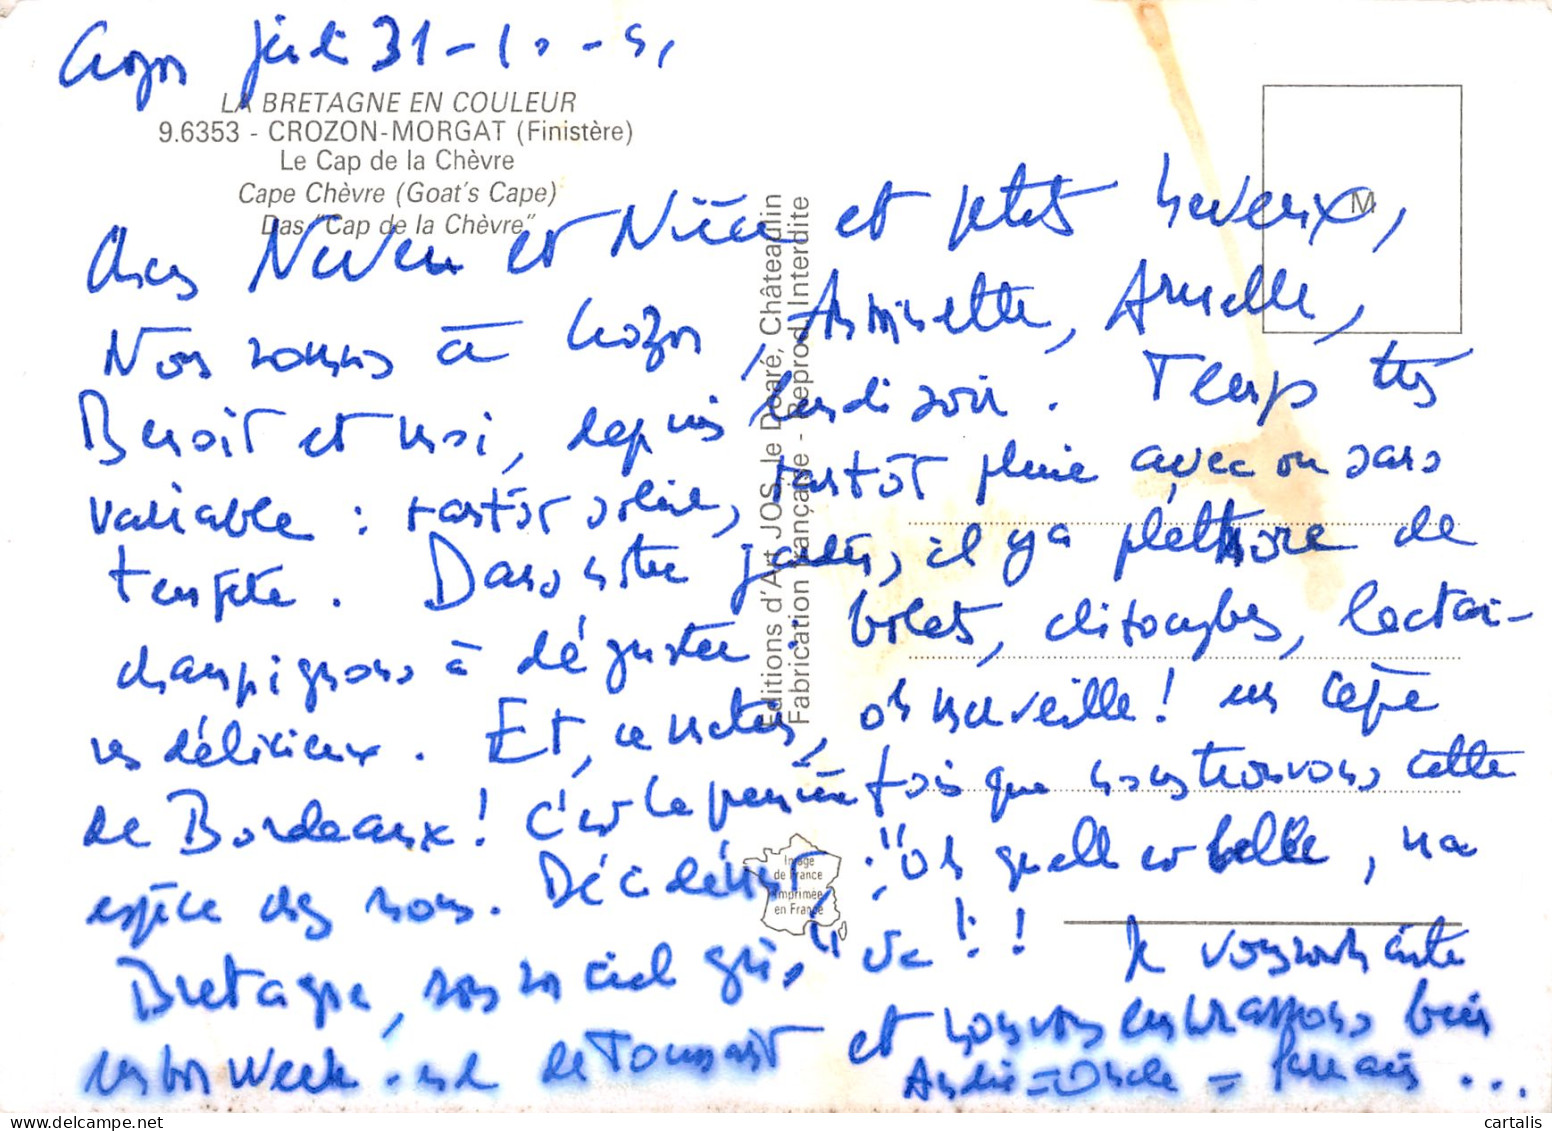 Crozon jeudi 31-10-91
LA BRETAGNE EN COULEUR
9.6353 - CROZON-MORGAT (Finistère)
Le Cap de la Chèvre
Cape Chèvre (Goat's Cape)
Das "Cap de la Chèvre"
M
Chers Neveu et Nièce et petits neveux,
Nous sommes à Crozon, Antoinette, Armelle,
Benoit et moi, depuis lundi soir. Temps très
variable : tantôt soleil, tantôt pluie avec ou sans
tempête. Dans notre jardin, il y a pléthore de
champignons à déguster : bolets, clitocybes, lactai-
res délicieux. Et, ce matin, oh merveille ! un cèpe
de Bordeaux ! C'est la première fois que nous trouvons cette
espèce chez nous. Décidément : "Oh qu'elle est belle, ma
Bretagne, sous son ciel gris" va !! Je vous souhaite
un bon week-end de Toussaint et nous vous embrassons bien
Oncle = parrain ...
Editions d'Art JOS le Doaré, Châteaulin
Fabrication française - Reprod. Interdite
Image
de France
Imprimée
en France
cartalis